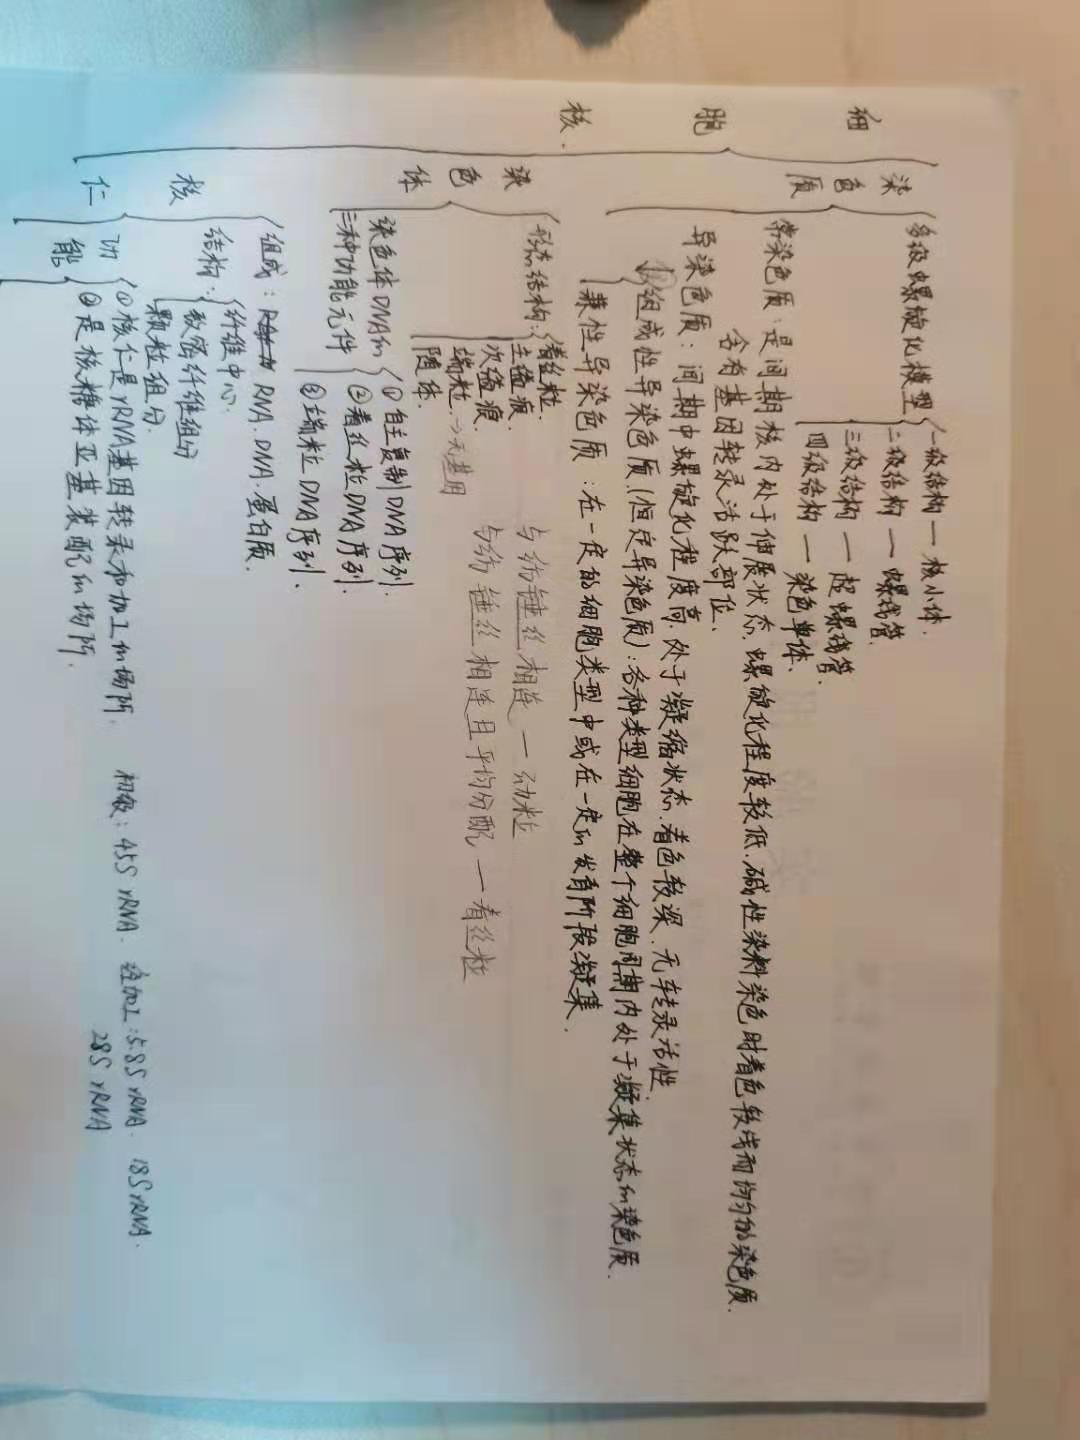 细胞核.
染色质
多级螺旋化模型
一级结构一核小体.
二级结构一螺线管.
三级结构一超螺线管.
四级结构一染色单体.
常染色质:是间期核内处于伸展状态.螺旋化程度较低.碱性染料染色时着色较浅而均匀的染色质.
含有基因转录活跃部位.
异染色质:间期中螺旋化程度高.处于凝缩状态.着色较深.无转录活性.
组成性异染色质(恒定异染色质):各种类型细胞在整个细胞周期内处于凝集状态的染色质.
兼性异染色质:在一定的细胞类型中或在一定的发育阶段凝集.
染色体
形态结构:
着丝粒.
主缢痕.
次缢痕.
端粒.→无基因
随体.
与纺锤丝相连一动粒
与纺锤丝相连且平均分配一着丝粒
染色体DNA的
三种功能元件
①自主复制DNA序列.
②着丝粒DNA序列.
③端粒DNA序列.
核仁
组成:RNA.DNA.蛋白质.
结构:
纤维中心.
致密纤维组分
颗粒组分.
功能
①核仁是rRNA基因转录和加工的场所. 初级:45S rRNA. 经加工:5.8S rRNA. 18S rRNA.
28S rRNA
②是核糖体亚基装配的场所.